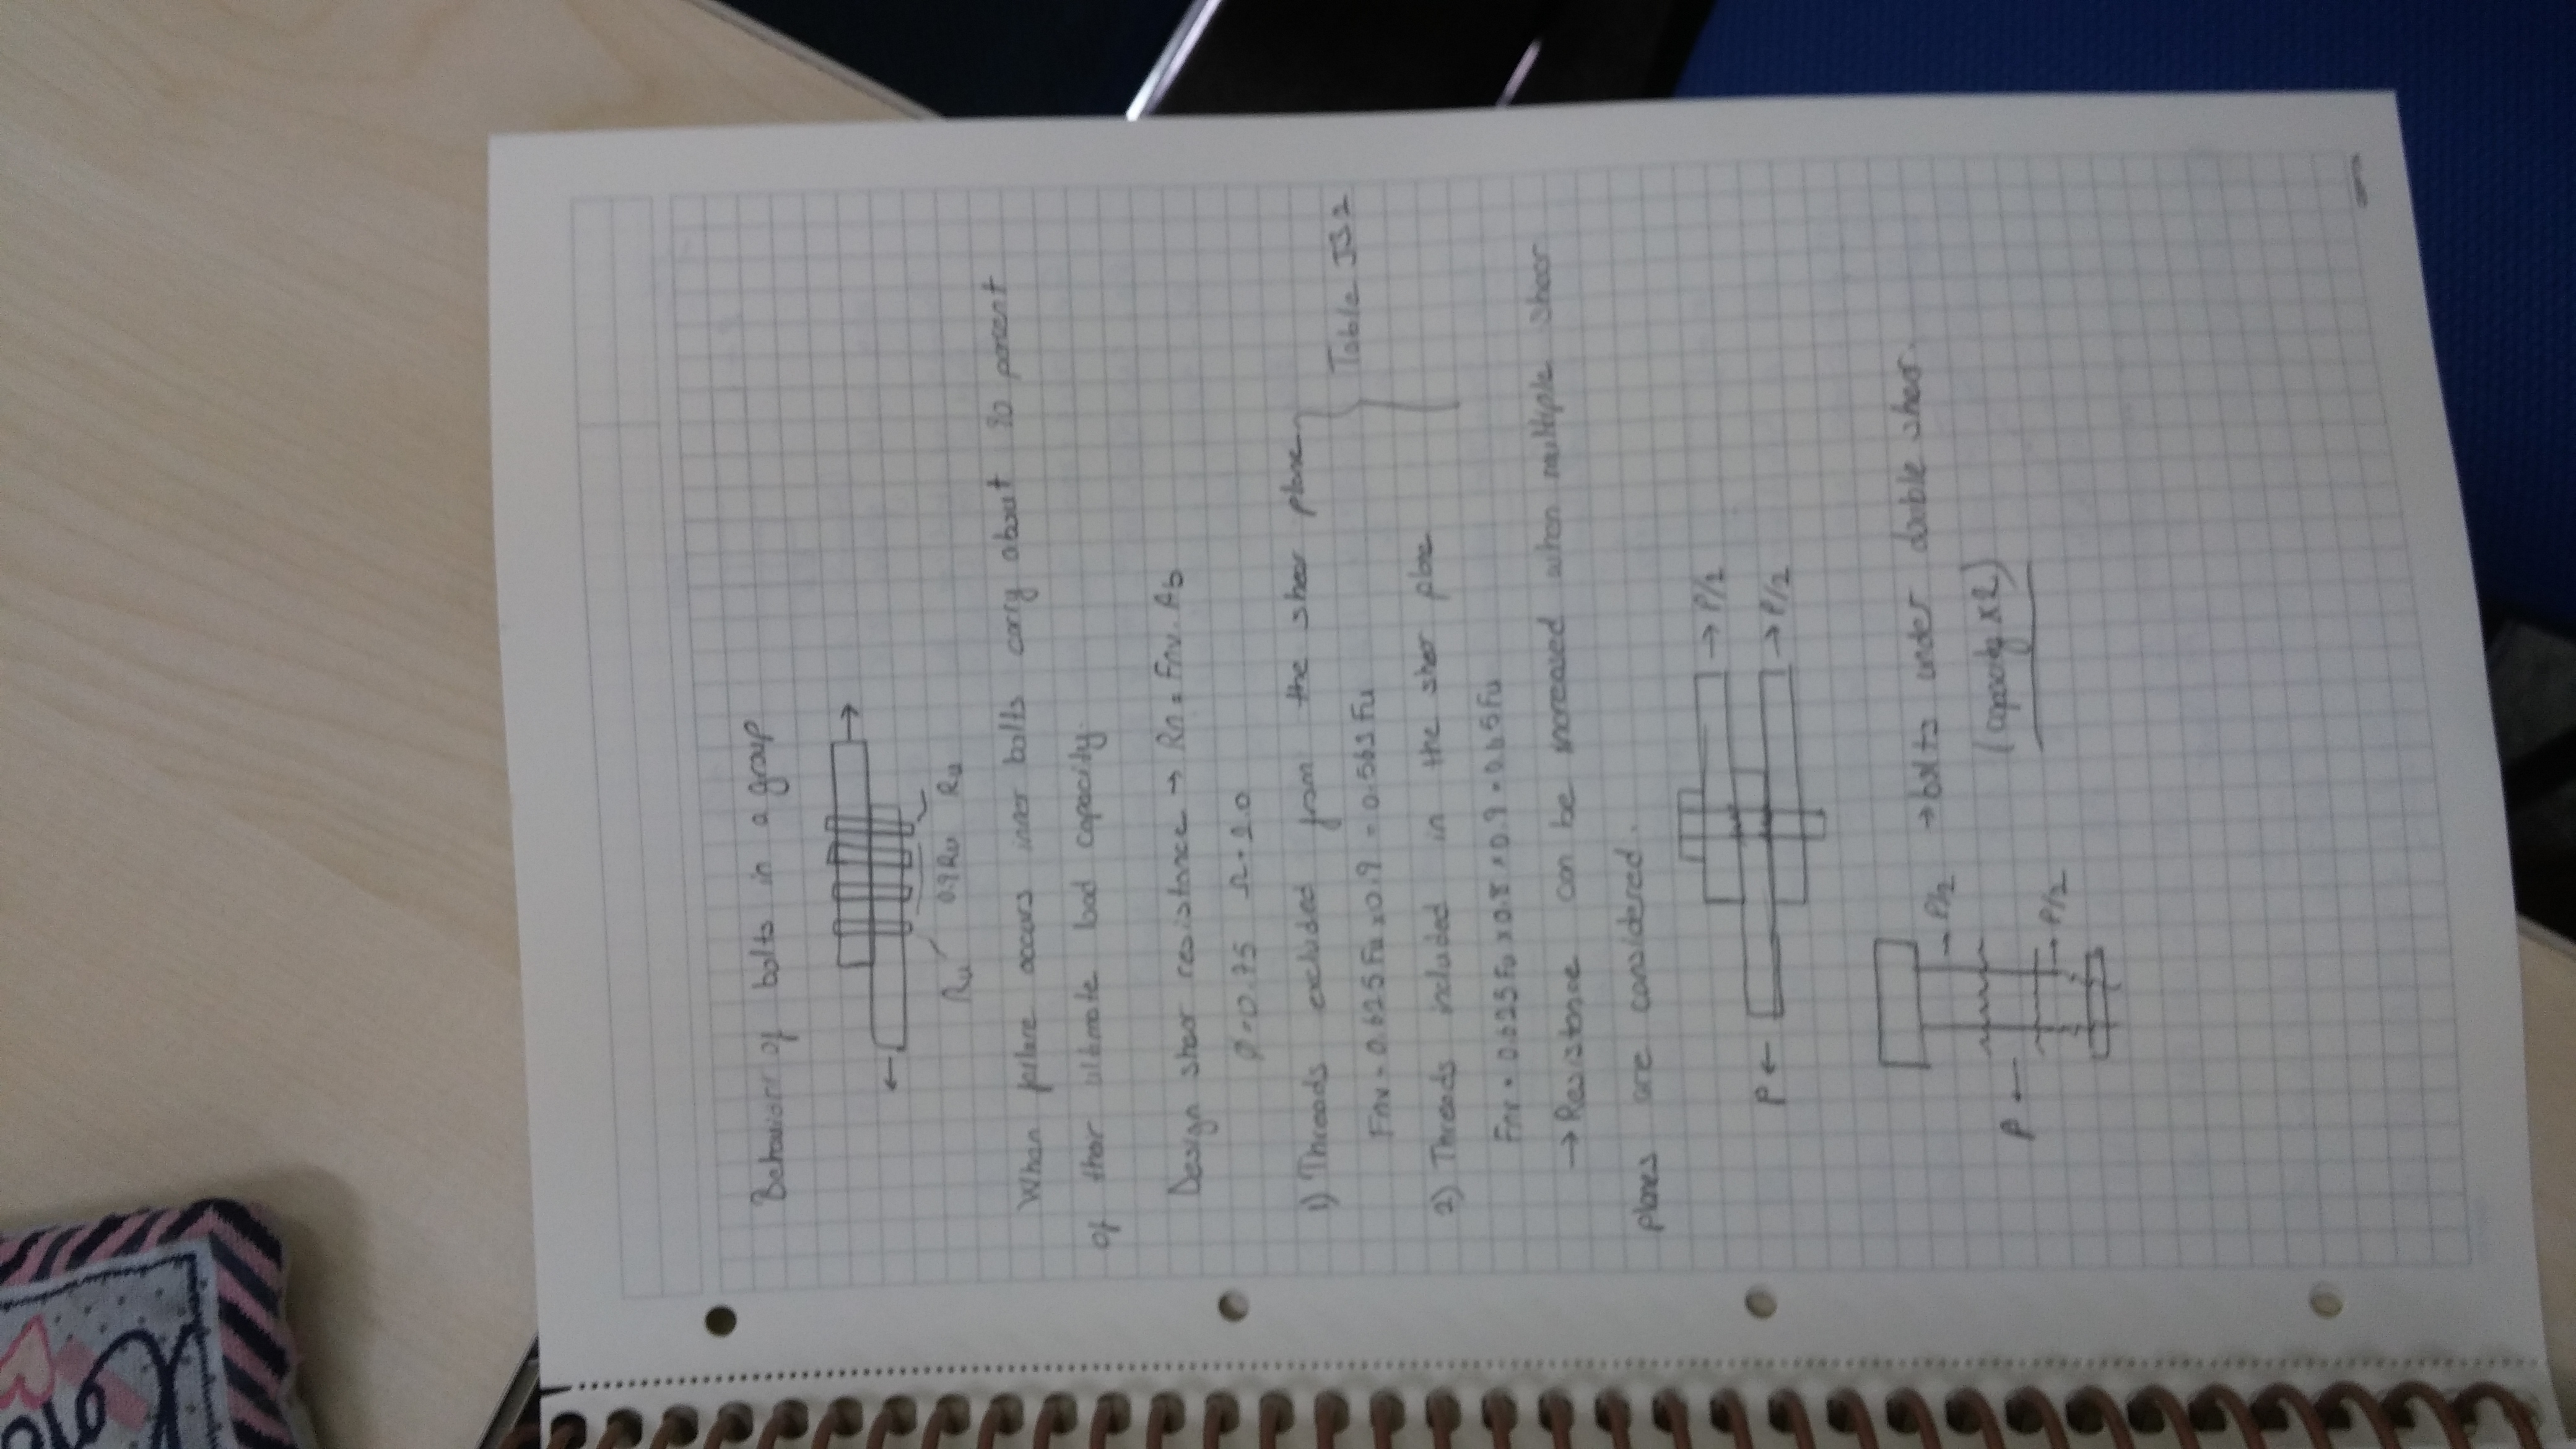 Behaviour of bolts in a group
Ru 0.9Ru Ru
When failure occurs inner bolts carry about 90 percent
of their ultimate load capacity.
Design shear resistance → Rn = Fnv. Ab
Ø=0.75 Ω=2.0
1) Threads excluded from the shear plane
Table J3.2
Fnv = 0.625 Fu x 0.9 = 0.563 Fu
2) Threads included in the shear plane
Fnv = 0.625 Fu x 0.8 x 0.9 = 0.45 Fu
→ Resistance can be increased when multiple shear
planes are considered.
→ P/2
P ←
→ P/2
→ P/2 → bolts under double shear.
P ← (capacity x2)
→ P/2